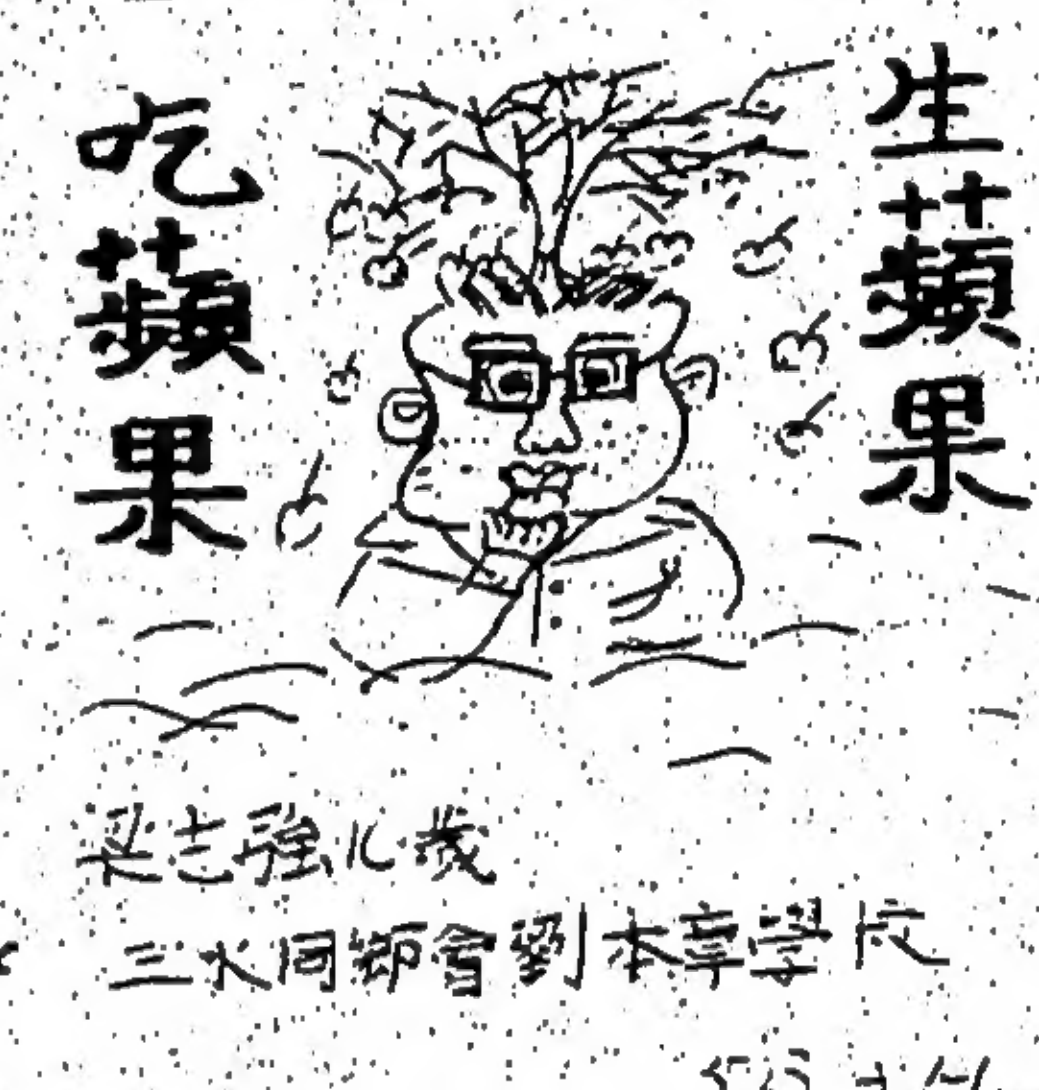 生蘋果
吃蘋果
梁志強八歲
三水同鄉會劉本章學校